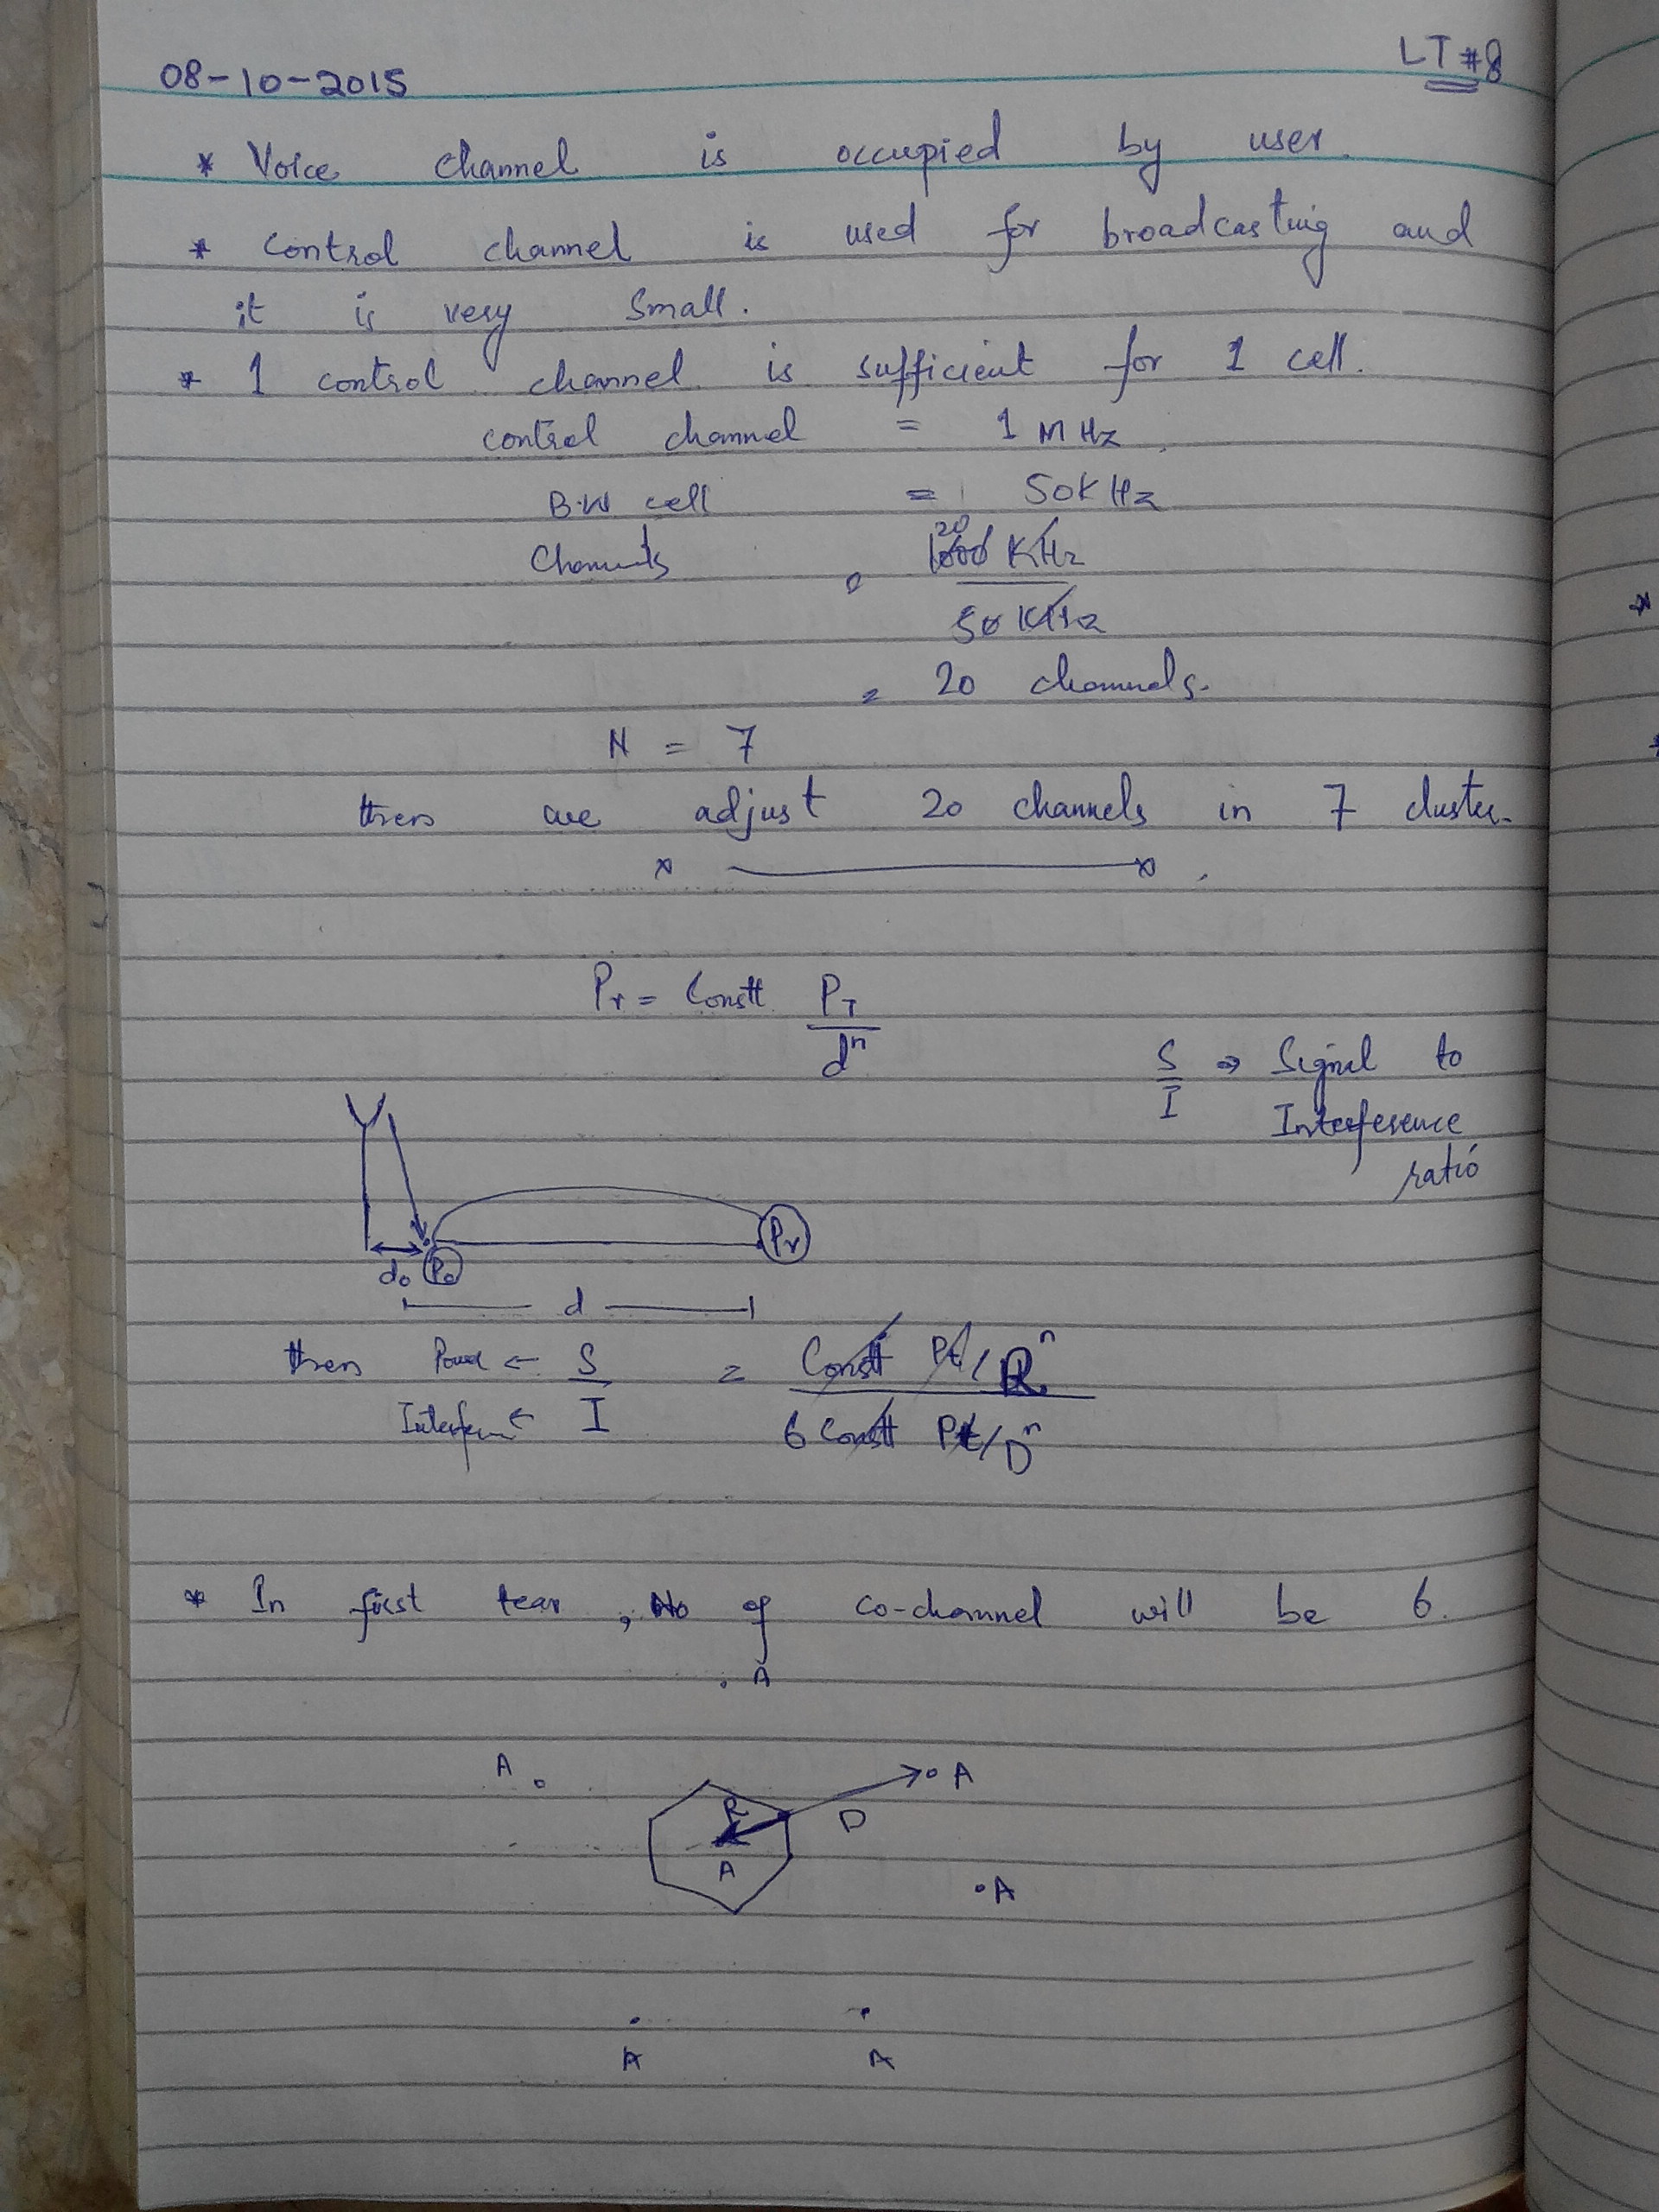 08-10-2015
LT #8
* Voice channel is occupied by user.
* Control channel is used for broadcasting and
it is very Small.
* 1 control channel is sufficient for 1 cell.
control channel = 1 MHz
B.W cell = 50KHz
Channels = 1000 KHz
20
50 KHz
= 20 channels.
N = 7
then we adjust 20 channels in 7 cluster.
x ———— x
Pr = Constt PT
dⁿ
S ⇒ Signal to
I Interference
ratio
Pr
do Po
d
then Power ← S = Constt Pt/Rⁿ
Interferen ← I 6 Constt Pt/Dⁿ
* In first tear, No of co-channel will be 6.
A
A
A
R
D
A
A
A
A